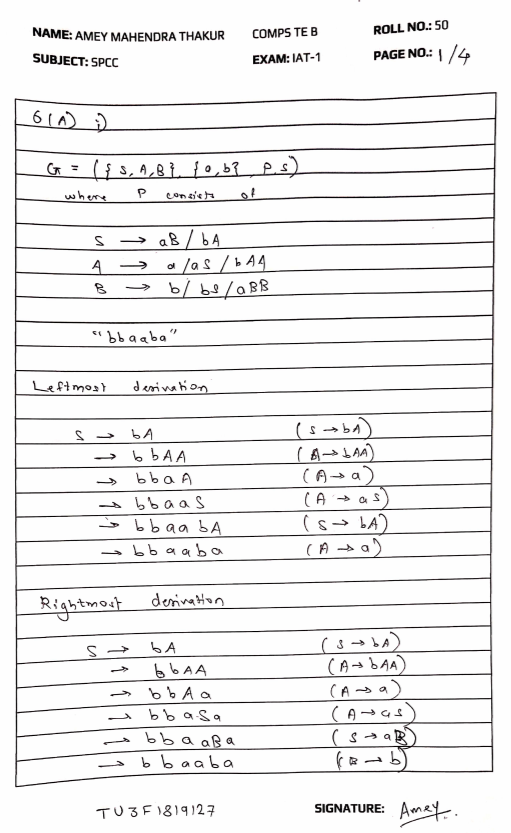 NAME: AMEY MAHENDRA THAKUR COMPS TE B ROLL NO.: 50
SUBJECT: SPCC EXAM: IAT-1 PAGE NO.: 1/4
6(A) i)
G = ({S, A, B}, {a, b}, P, S)
where P consists of
S → aB / bA
A → a / aS / bAA
B → b / bS / aBB
"bbaaba"
Leftmost derivation
S → bA (S → bA)
→ bbAA (A → bAA)
→ bbaA (A → a)
→ bbaaS (A → aS)
→ bbaabA (S → bA)
→ bbaaba (A → a)
Rightmost derivation
S → bA (S → bA)
→ bbAA (A → bAA)
→ bbAa (A → a)
→ bbaSa (A → aS)
→ bbaaBa (S → aB)
→ bbaaba (B → b)
TU3F1819127 SIGNATURE: Amey